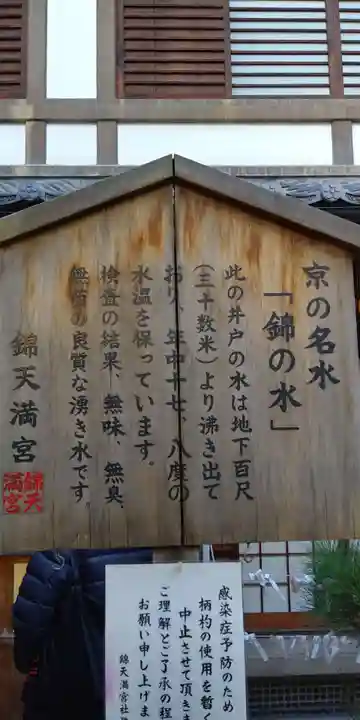 京の名水
「錦の水」
此の井戸の水は地下百尺
(三十数米)より沸き出て
おり、年中十七、八度の
水温を保っています。
検査の結果、無味、無臭、
無菌の良質な湧き水です。
錦天満宮
錦天
満宮
感染症予防のため
柄杓の使用を暫
中止させて頂きま
ご理解とご了承の程
お願い申し上げま
錦天満宮社